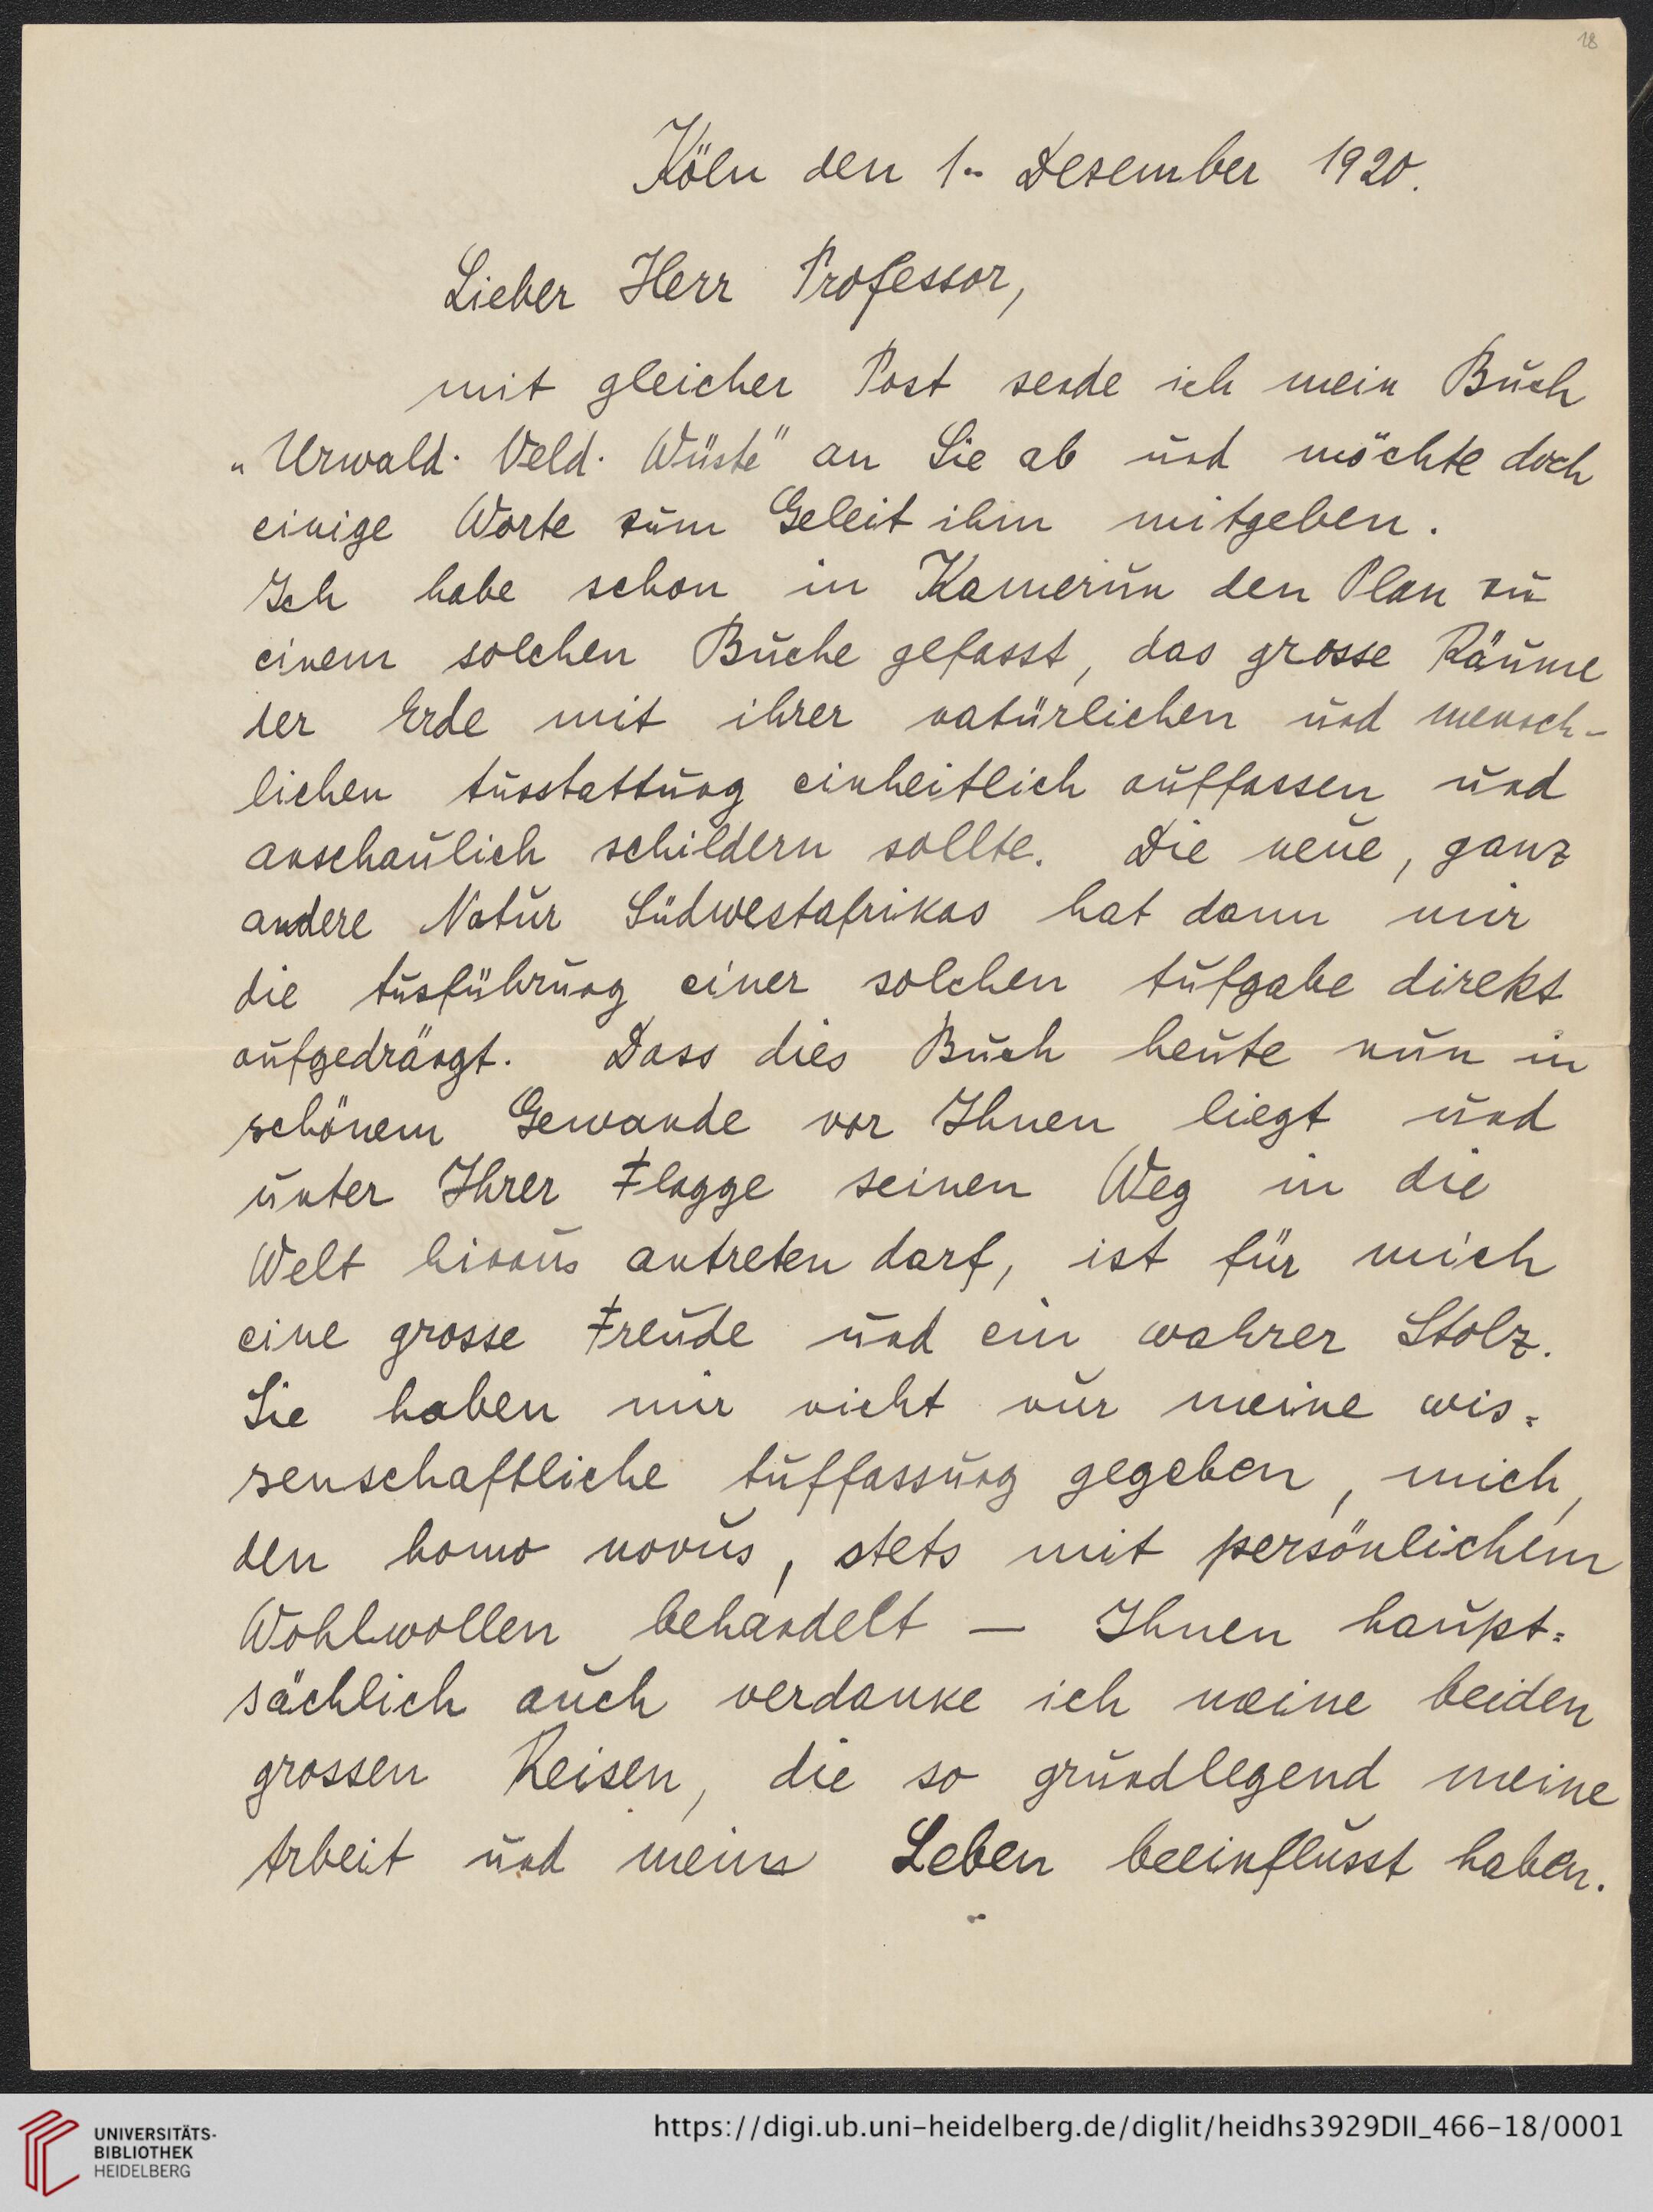 18
Köln den 1. Dezember 1920.
Lieber Herr Professor,
mit gleicher Post sende ich mein Buch
„Urwald. Veld. Wüste" an Sie ab und möchte doch
einige Worte zum Geleit ihm mitgeben.
Ich habe schon in Kamerun den Plan zu
einem solchen Buche gefasst, das grosse Räume
der Erde mit ihrer natürlichen und mensch-
lichen Ausstattung einheitlich auffassen und
anschaulich schildern sollte. Die neue, ganz
andere Natur Südwestafrikas hat dann mir
die Ausführung einer solchen Aufgabe direkt
aufgedrängt. Dass dies Buch heute nun in
schönem Gewande vor Ihnen liegt und
unter Ihrer Flagge seinen Weg in die
Welt hinaus antreten darf, ist für mich
eine grosse Freude und ein wahrer Stolz.
Sie haben mir nicht nur meine wis=
senschaftliche Auffassung gegeben, mich,
den homo novus, stets mit persönlichem
Wohlwollen behandelt — Ihnen haupt=
sächlich auch verdanke ich meine beiden
grossen Reisen, die so grundlegend meine
Arbeit und mein Leben beeinflusst haben.
UNIVERSITÄTS-
BIBLIOTHEK
HEIDELBERG
https://digi.ub.uni-heidelberg.de/diglit/heidhs3929DII_466-18/0001